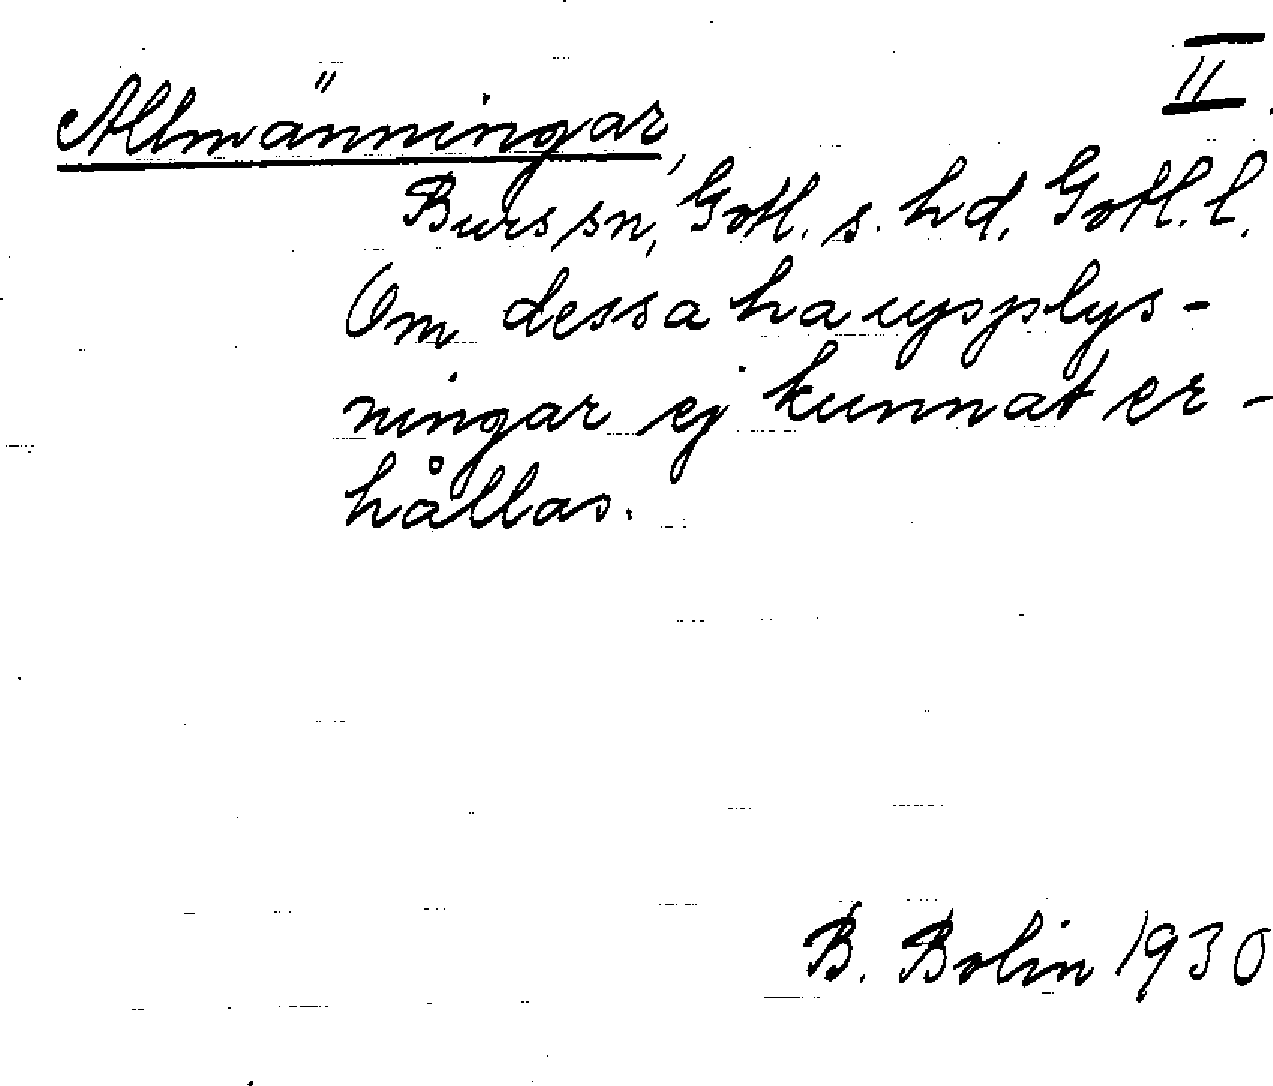 II.
Allmänningar,
Burs sn, Gotl. s. hd, Gotl. l.
Om dessa ha uppplys-
ningar ej kunnat er-
hållas.
B. Bolin 1930